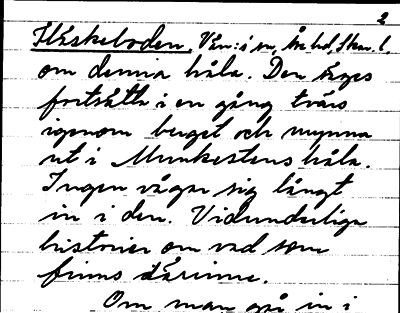 2
Fläskeboden.
om denna håla. Den säges
fortsätta i en gång tvärs
igenom berget och mynna
ut i Munkestens håla.
Ingen vågar sig långt
in i den. Vidunderliga
historier om vad som
finns därinne.
Om man går in i